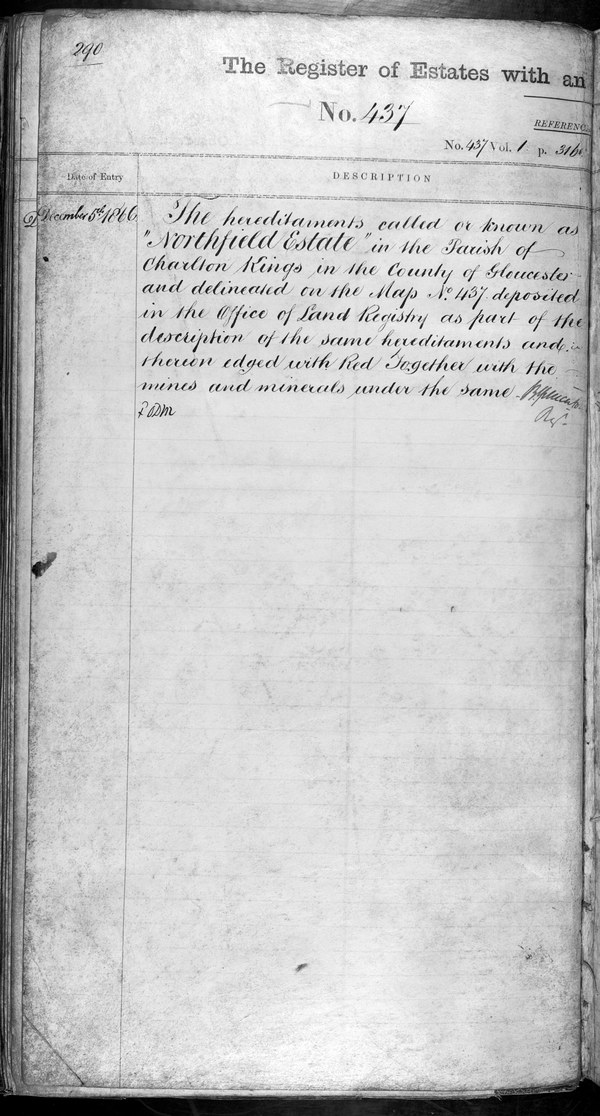 290
The Register of Estates with an
No. 437
REFERENC
No. 437 Vol. 1 p. 316
Date of Entry
DESCRIPTION
December 5th 1866
The hereditaments called or known as
"Northfield Estate" in the Parish of
Charlton Kings in the County of Gloucester
and delineated on the Map No. 437 deposited
in the Office of Land Registry as part of the
description of the same hereditaments and
thereon edged with Red Together with the
mines and minerals under the same